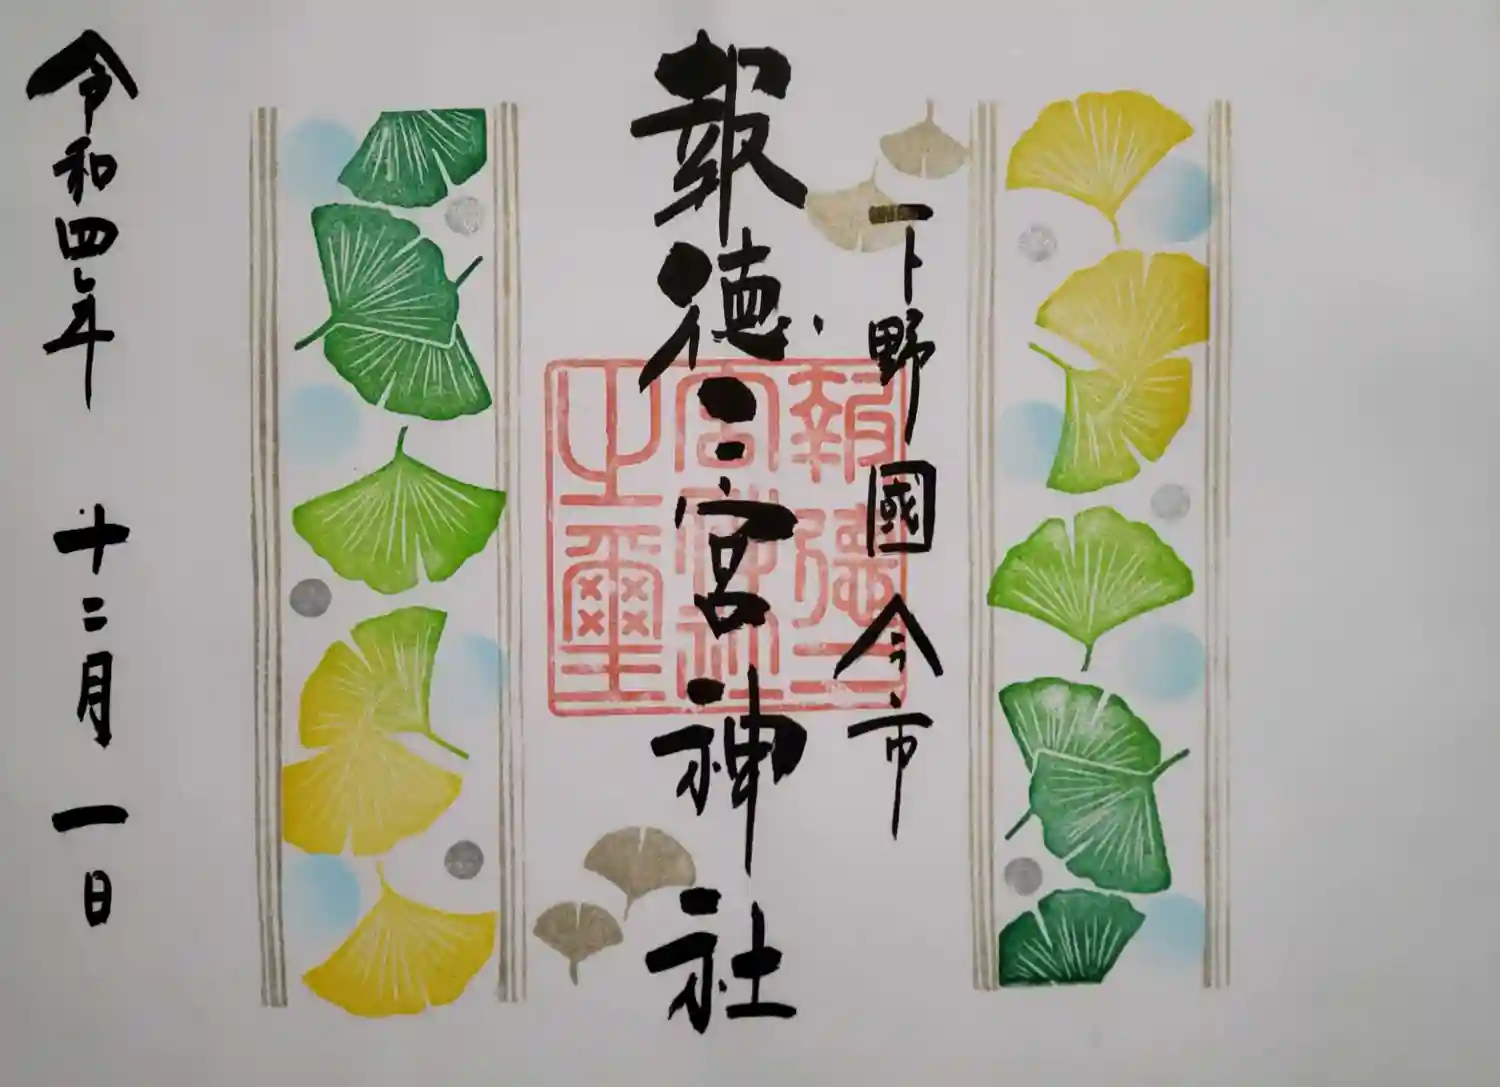 下野國今市
報徳二宮神社
報徳二
宮神社
之璽
令和四年 十二月 一日